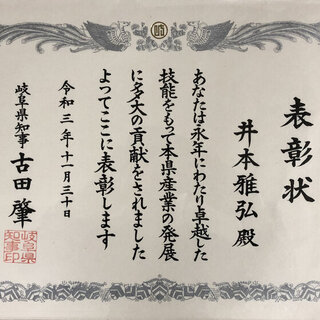 表彰状
井本雅弘殿
あなたは永年にわたり卓越した
技能をもって本県産業の発展
に多大の貢献をされました
よってここに表彰します
令和三年十一月三十日
岐阜県知事 古田肇
岐阜県
知事印